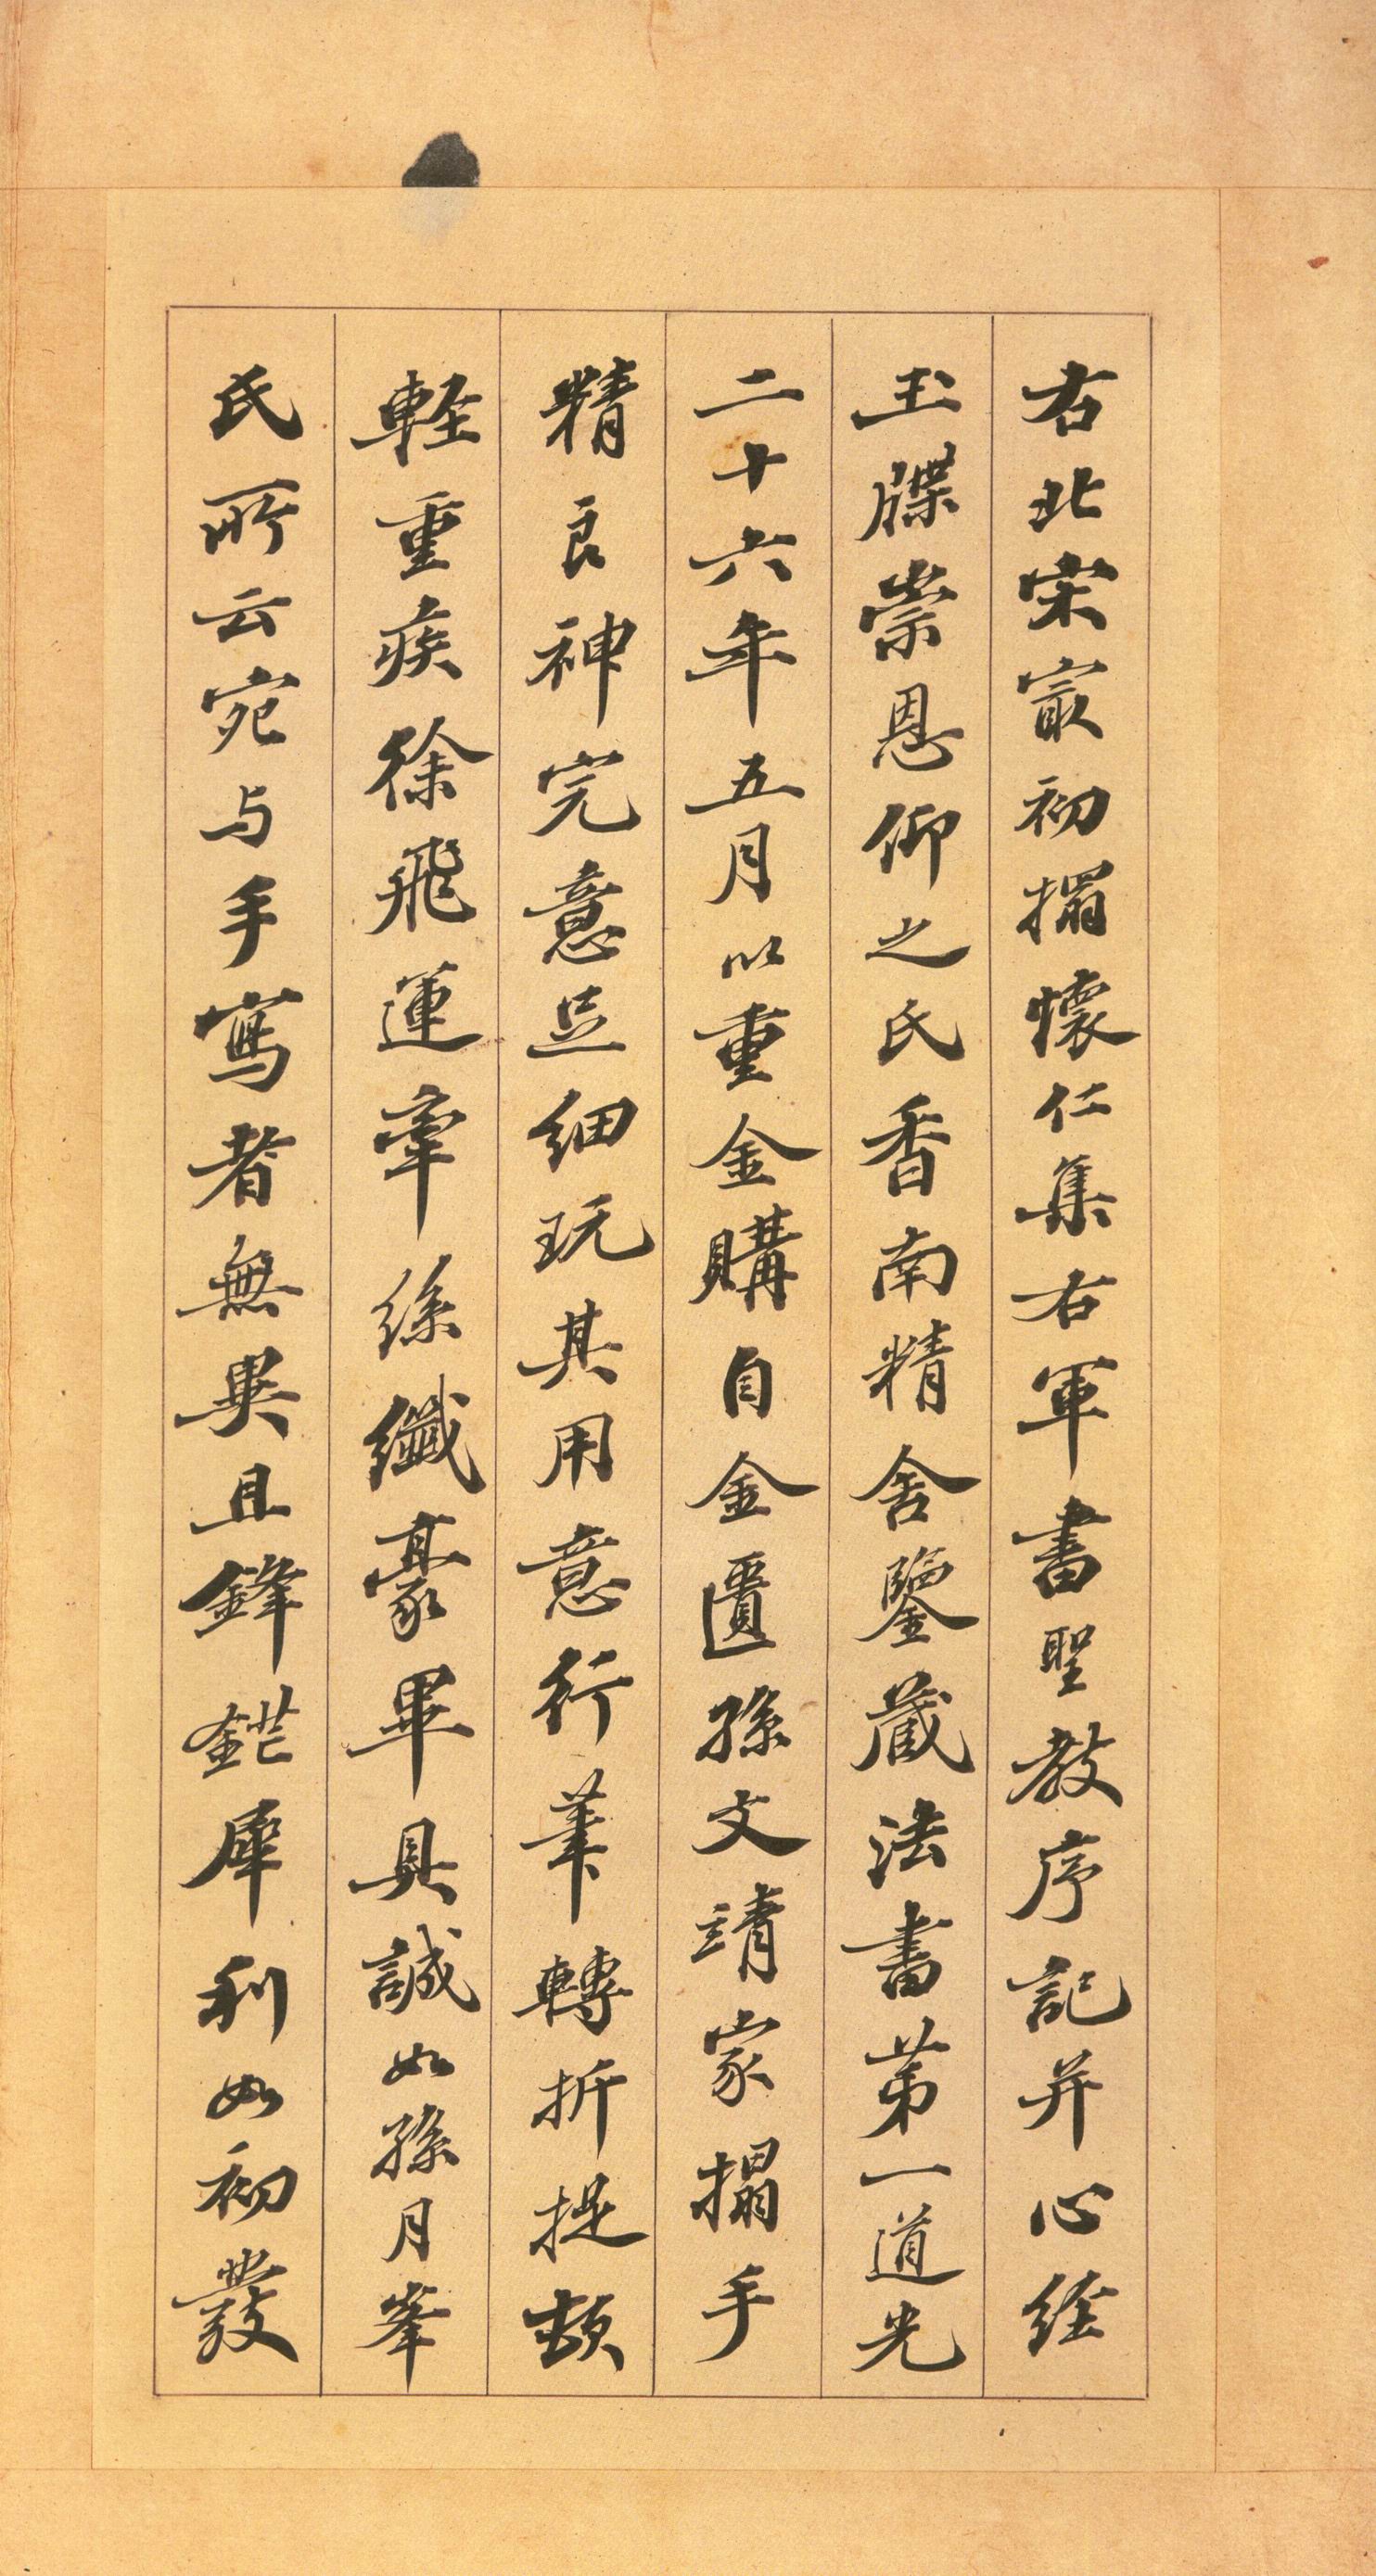 右北宋冣初搨懷仁集右軍書聖教序記并心経
玉牒崇恩仰之氏香南精舍鑒藏法書苐一道光
二十六年五月以重金購自金匱孫文靖家搨手
精良神完意足細玩其用意行筆轉折提頓
輕重疾徐飛運牽絲纖豪畢具誠如孫月峯
氏所云宛与手寫者無異且鋒鋩犀利如初發